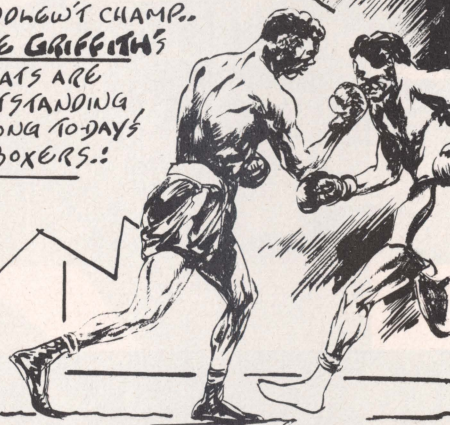 DDLEW'T CHAMP..
E GRIFFITH'S
ATS ARE
TSTANDING
ONG TO-DAY'S
BOXERS.!